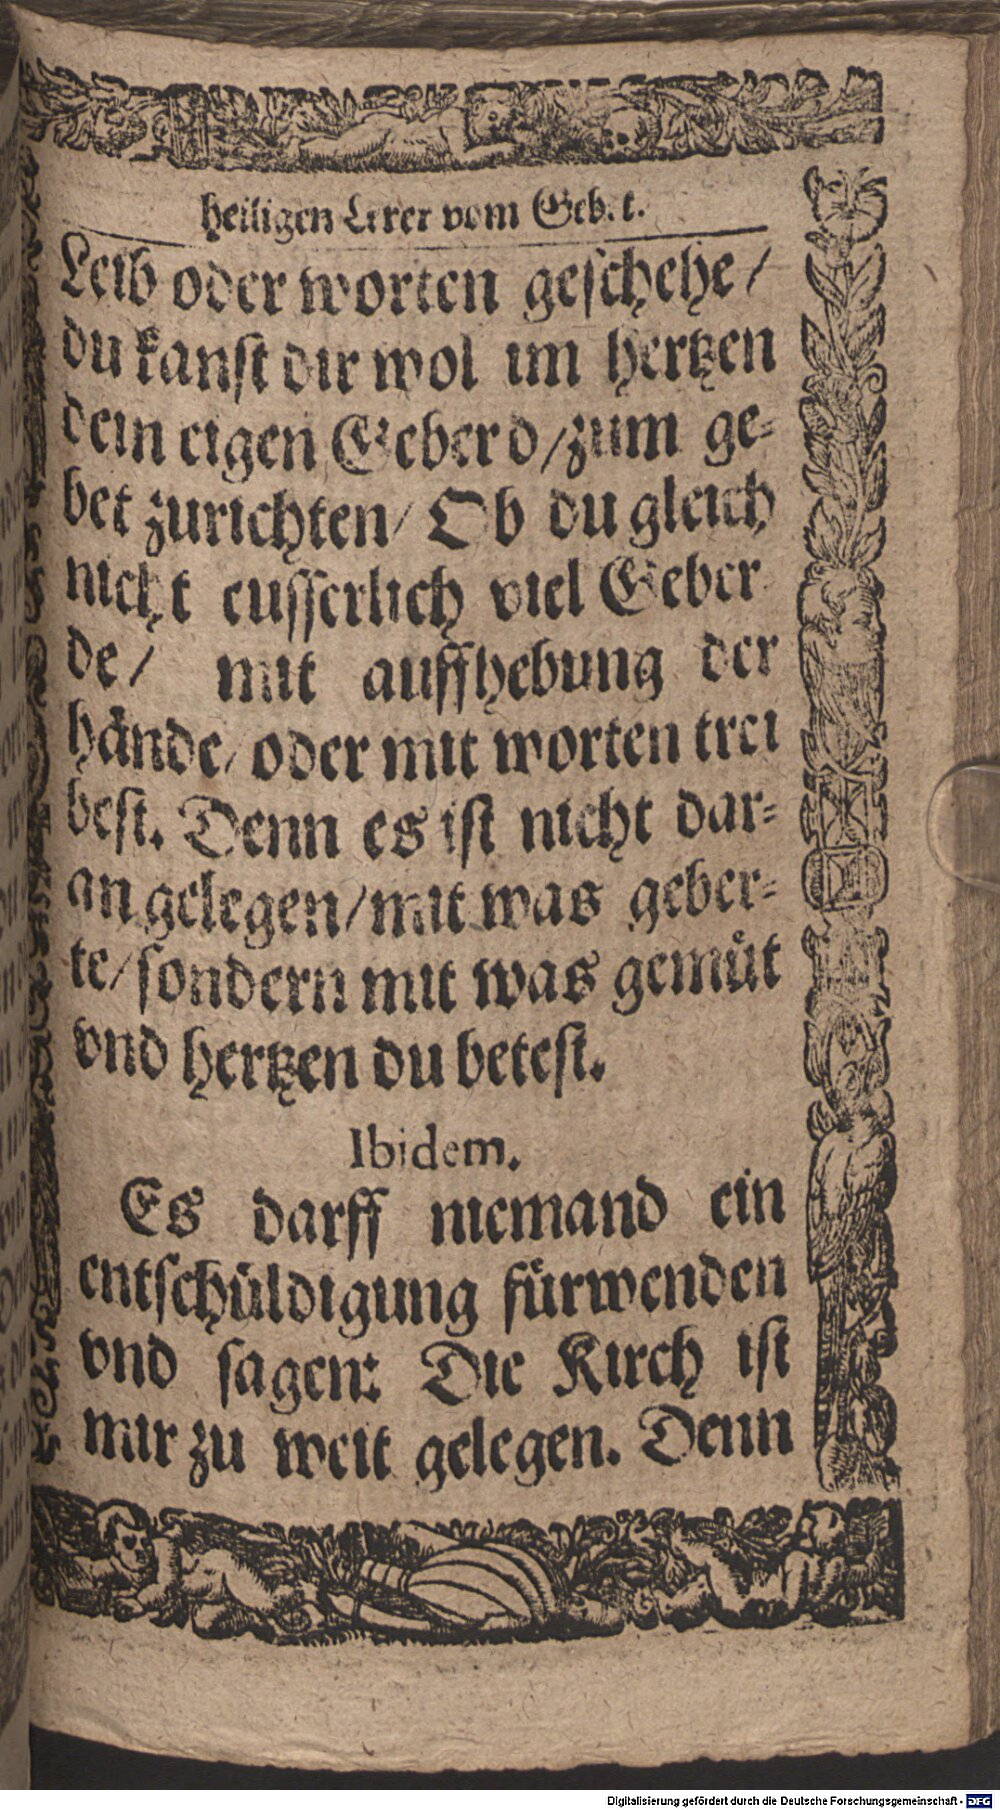 heiligen Lerer vom Gebet.
Leib oder worten geschehe/
du kanst dir wol im hertzen
dein eigen Geberd/zum ge-
bet zurichten/ Ob du gleich
nicht eusserlich viel Geber
de/ mit auffhebung der
hände/ oder mit worten trei
best. Denn es ist nicht dar-
an gelegen/mit was geber-
te/sondern mit was gemüt
vnd hertzen du betest.
Ibidem.
Es darff niemand ein
entschüldigung fürwenden
vnd sagen: Die Kirch ist
mir zu weit gelegen. Denn
Digitalisierung gefördert durch die Deutsche Forschungsgemeinschaft - DFG